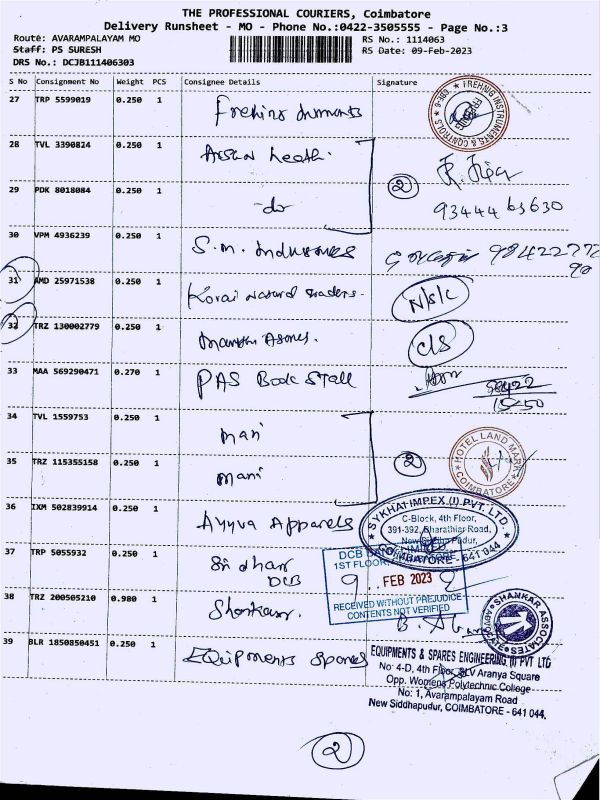 THE PROFESSIONAL COURIERS, Coimbatore
Delivery Runsheet - MO - Phone No.:0422-3505555 - Page No.:3
Route: AVARAMPALAYAM MO
RS No.: 1114063
Staff: PS SURESH
RS Date: 09-Feb-2023
DRS No.: DCJB111406303
S No Consignment No Weight PCS Consignee Details Signature
27 TRP 5599019 0.250 1
TREHNIG INSTRUMENTS & CONTROLS
28 TVL 3390824 0.250 1
2
29 PDK 8018084 0.250 1 -do
93444 63630
30 VPM 4936239 0.250 1 S.M. Industries
31 AMD 25971538 0.250 1 Korai Natural Traders.
N/S/L
32 TRZ 130002779 0.250 1
C/S
33 MAA 569290471 0.270 1 PAS Book Stall
15250
34 TVL 1559753 0.250 1 Mani
HOTEL LAND MARK
COIMBATORE
35 TRZ 115355158 0.250 1 Mani
2
36 IXM 502839914 0.250 1 Ayyva Apparels
SYKHAT IMPEX (I) PVT. LTD.
C-Block, 4th Floor,
391-392, Bharathiar Road,
New Siddha Pudur,
COIMBATORE - 641 044
37 TRP 5055932 0.250 1 Sridhar
DCB
DCB BANK LIMITED
1ST FLOOR,
9 FEB 2023
RECEIVED WITHOUT PREJUDICE
CONTENTS NOT VERIFIED
38 TRZ 200505210 0.980 1 Shankar
SHANKAR ASSOCIATES
39 BLR 1850850451 0.250 1 Equipments Spares
EQUIPMENTS & SPARES ENGINEERING (I) PVT LTD
No: 4-D, 4th Floor, SLV Aranya Square
Opp. Womens Polytechnic College
No: 1, Avarampalayam Road
New Siddhapudur, COIMBATORE - 641 044.
2